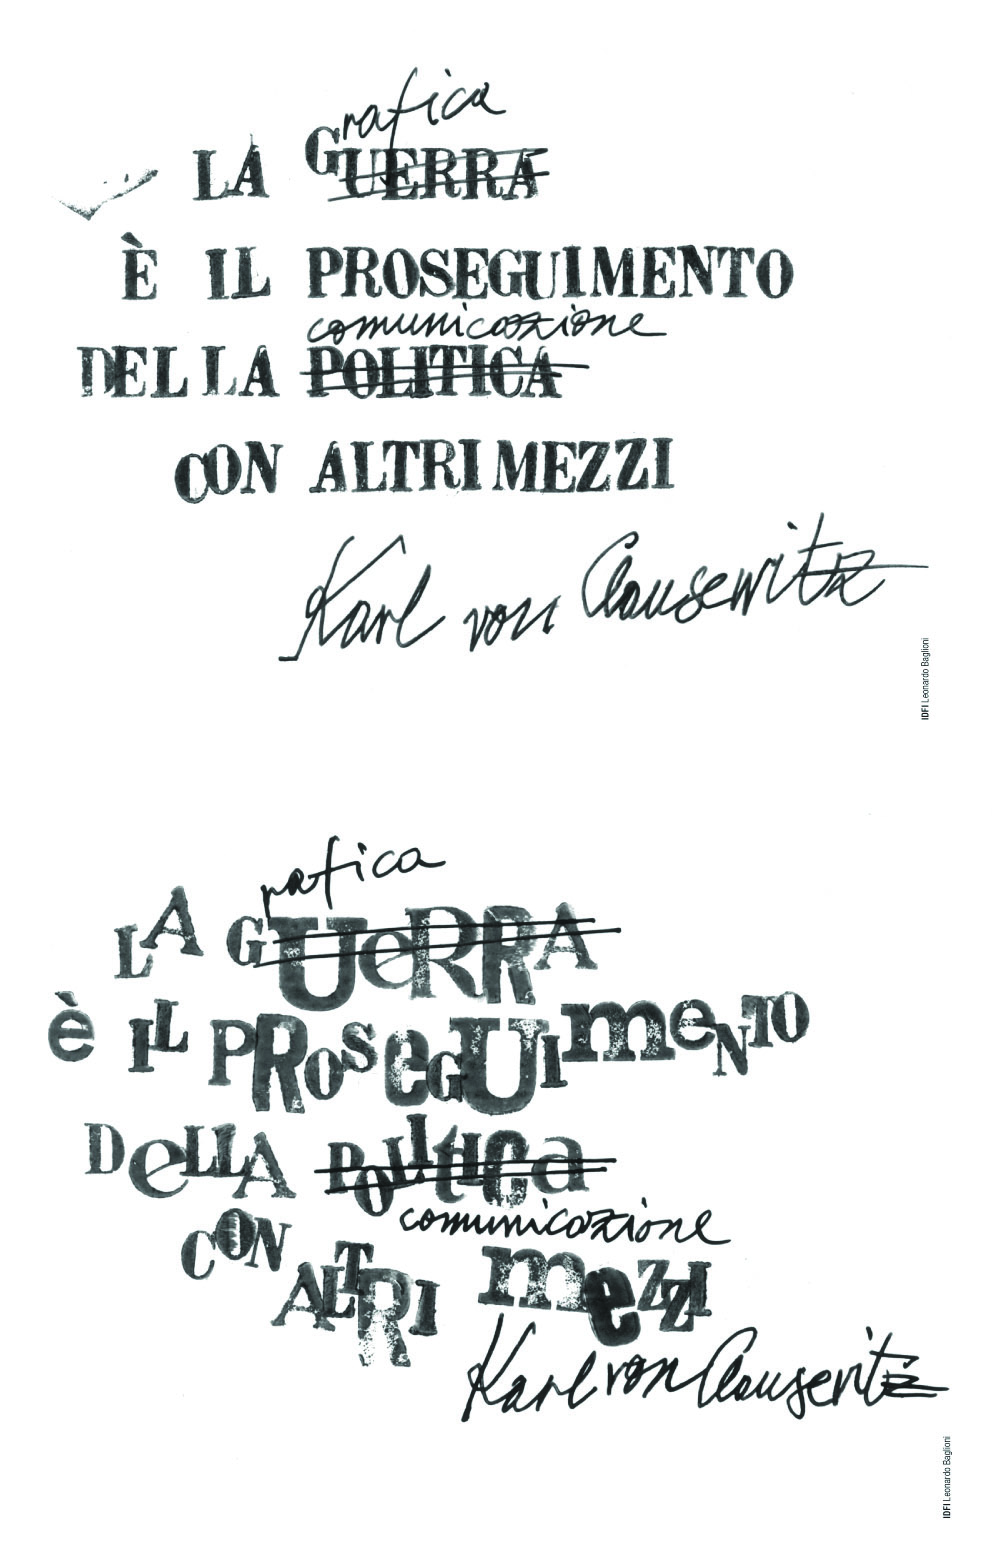 rafica
LA GUERRA
È IL PROSEGUIMENTO
comunicazione
DELLA POLITICA
CON ALTRI MEZZI
Karl von Clausewitz
IDFI Leonardo Baglioni
rafica
LA GUeRRA
è IL PROSeGUImeNTO
DeLLA POLItICa
comunicazione
CON ALTRI meZZI
Karl von Clausewitz
IDFI Leonardo Baglioni